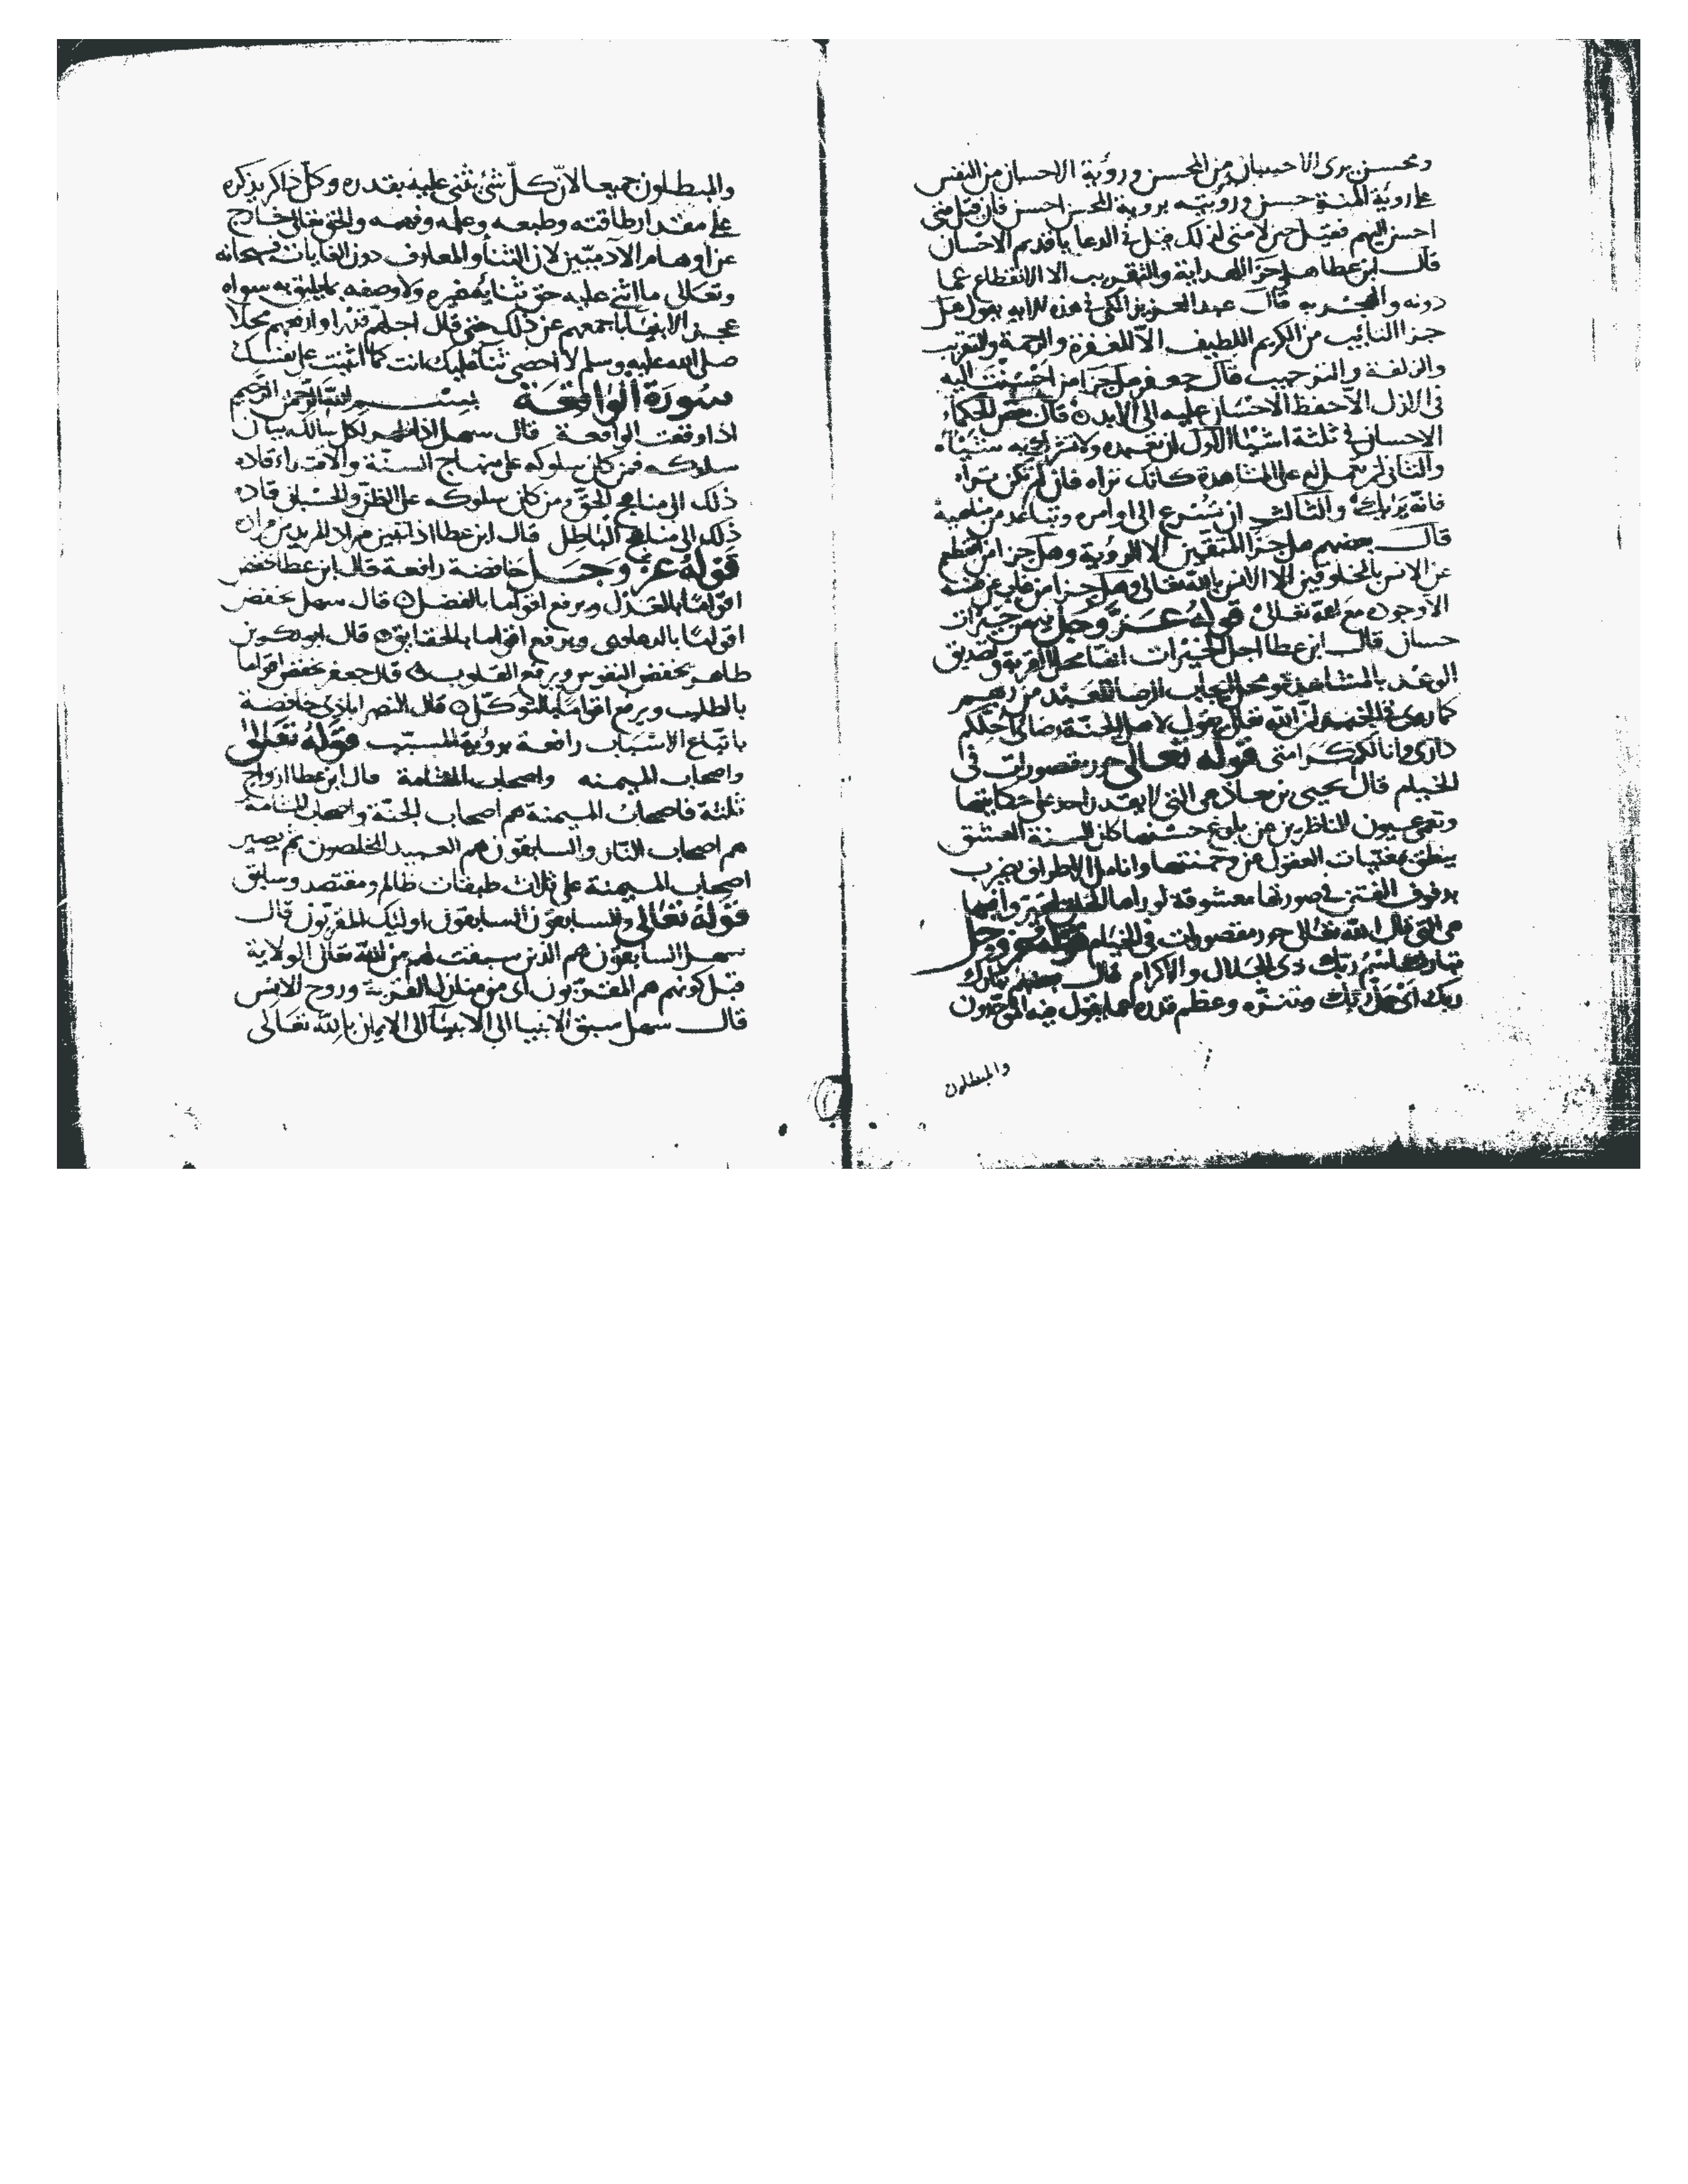 ومحسن يرى الاحسان من المحسن وروية الاحسان من النفس
على روية المنة حسن ورويته بروية المحسن احسن فان قيل متى
احسن اليهم فقيل حين لا متى لذلك قيل في الدعا يا قديم الاحسان
قال ابن عطا هل جزا الهداية والتقريب الا الانقطاع عما
دونه والتجرد به قال عبد العزيز المكى فى هذه الايه يقول هل
جزا التايب من الكريم اللطيف الا المغفرة والرحمة والتقريب
والزلفة والترحيب قال جعفر هل جزا من احسنت اليه
فى الازل الا حفظ الاحسان عليه الى الابد قال بعض الحكماء
الاحسان فى ثلثة اشيا الاول ان تعبده ولا تشرك به شيئا
والثانى ان تعمل له على المشاهدة كانك تراه فان لم تكن تراه
فانه يراك والثالث ان تسرع الى اوامره وتتباعد من مناهيه
قال بعضهم هل جزا المتقين الا الروية وهل جزا من انقطع
عن الانس بالمخلوقين الا الانس بالله تعالى وهل جزا من فنى عن
الا وجود مع الله تعالى قوله عز وجل فيهن خيرات
حسان قال ابن عطا اجل الخيرات انها محل القربة و تصديق
الوعد بالمشاهدة ومحل ايجاب الرضا للعبد من ربهم
كما روى فى الخبر ان الله تعالى يقول لاهل الجنة رضاى احلكم
دارى وانالكم كرامتى قوله تعالى حور مقصورات فى
الخيام قال يحيى بن معاذ هى التى لا يقدر احد على حكايتها
وتعمى عيون الناظرين من بلوغ حسنها كان السنة العشق
ينطق بمغيبات العقول من وجنتها وانامل الاطراف يضرب
بدفوف الفتن فى صورتها معشوقة لو راها
هى التى قال الله تعالى حور مقصورات فى الخيام قوله عز وجل
تبارك اسم ربك ذى الجلال والاكرام قال بعضهم تبارك
ربك اى جل ربك وتنزه وعظم قدره عما يقول فيه الموحدون
والمبطلون
والمبطلون جميعا لان كل شئ يثنى عليه بقدره وكل ذاكر يذكره
على مقدار طاقته وطبعه وعلمه وفهمه والحق تعالى خارج
عن اوهام الآدميين لان الثنا والمعارف دون الغايات سبحانه
وتعالى ما اثنى عليه حق ثنايه غيره ولا وصفه بما يليق به سواه
عجز الانبيا باجمعهم عن ذلك حتى قال اجلهم قدرا وارفعهم محلا
صلى الله عليه وسلم لا احصى ثنا عليك انت كما اثنيت على نفسك
سورة الواقعة بسم الله الرحمن الرحيم
اذا وقعت الواقعة قال سهل اذا ظهر لكل سالك بيان
سلوكه فمن كان سلوكه على منهاج السنة والاقتداء قاده
ذلك الى مناهج الحق ومن كان سلوكه على الظن والحسبان قاده
ذلك الى مناهج الباطل قال ابن عطا اذا تبين مراد المريد من مراد
قوله عز وجل خافضة رافعة قال ابن عطا خفض
اقواما بالعدل ويرفع اقواما بالفضل قال سهل يخفض
اقواما بالدعاوى ويرفع اقواما بالحقايق قال ابو بكر بن
طاهر يخفض النفوس ويرفع القلوب قال جعفر يخفض اقواما
بالطلب ويرفع اقواما بالتوكل قال النصراباذى خافضة
باتباع الاسباب رافعة بروية المسبب قوله تعالى
واصحاب الميمنه واصحاب المشامة قال ابن عطا ازواج
ثلثة فاصحاب الميمنة هم اصحاب الجنة واصحاب المشامة
هم اصحاب النار والسابقون هم العبيد المخلصون ثم يصير
اصحاب الميمنة على ثلاث طبقات ظالم ومقتصد وسابق
قوله تعالى والسابقون السابقون اوليك المقربون قال
سهل السابقون هم الذين سبقت لهم من الله تعالى الولاية
قبل كونهم هم المقربون اى فى منازل القربة وروح الانس
قال سهل سبق الانبيا الى الانبيا الى الايمان بالله تعالى